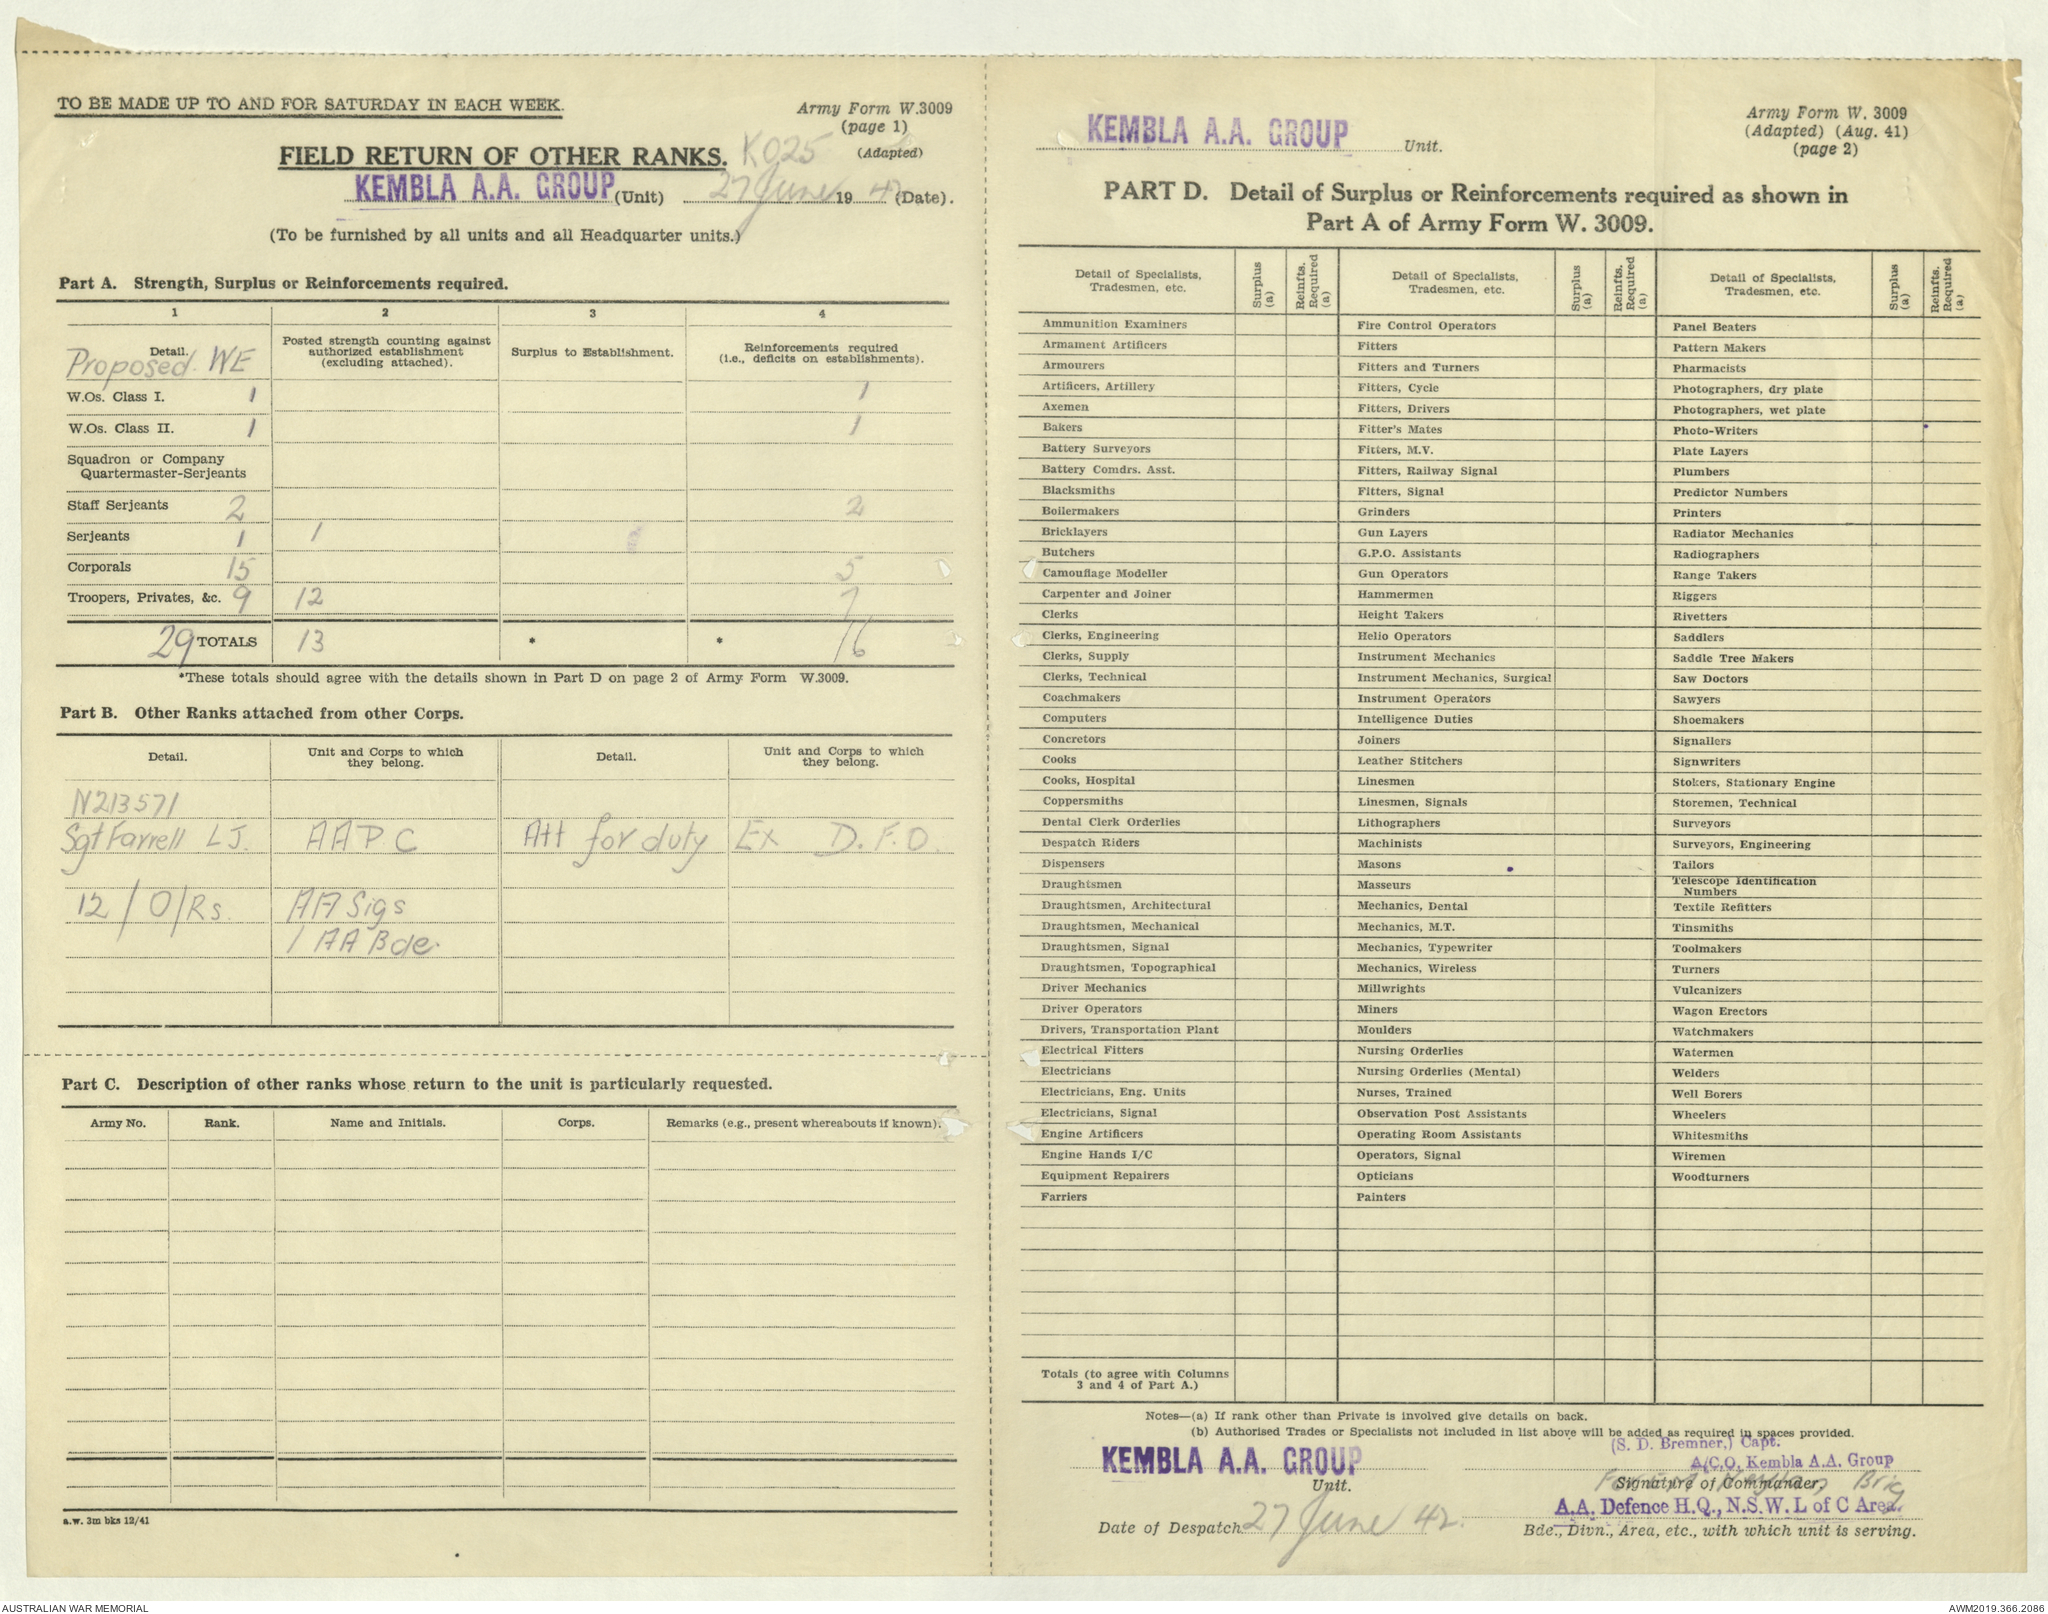 TO BE MADE UP TO AND FOR SATURDAY IN EACH WEEK.
Army Form W.3009
(page 1)
(Adapted)
FIELD RETURN OF OTHER RANKS. K025
KEMBLA A.A. GROUP (Unit) 27 June 1942 (Date).
(To be furnished by all units and all Headquarter units.)
Part A. Strength, Surplus or Reinforcements required.
1 2 3 4
Detail. Posted strength counting against authorized establishment (excluding attached). Surplus to Establishment. Reinforcements required (i.e., deficits on establishments).
Proposed WE
W.Os. Class I. 1 1
W.Os. Class II. 1 1
Squadron or Company
Quartermaster-Serjeants
Staff Serjeants 2 2
Serjeants 1 1
Corporals 15 5
Troopers, Privates, &c. 9 12 7
29 TOTALS 13 * * 16
*These totals should agree with the details shown in Part D on page 2 of Army Form W.3009.
Part B. Other Ranks attached from other Corps.
Detail. Unit and Corps to which they belong. Detail. Unit and Corps to which they belong.
N213571
Sgt Farrell L J. AAPC Att for duty Ex D.F.O.
12/O/Rs. AA Sigs
1 AA Bde
Part C. Description of other ranks whose return to the unit is particularly requested.
Army No. Rank. Name and Initials. Corps. Remarks (e.g., present whereabouts if known).
a.w. 3m bks 12/41
Army Form W. 3009
(Adapted) (Aug. 41)
(page 2)
KEMBLA A.A. GROUP Unit.
PART D. Detail of Surplus or Reinforcements required as shown in
Part A of Army Form W. 3009.
Detail of Specialists, Tradesmen, etc. Surplus (a) Reinfts. Required (a) Detail of Specialists, Tradesmen, etc. Surplus (a) Reinfts. Required (a) Detail of Specialists, Tradesmen, etc. Surplus (a) Reinfts. Required (a)
Ammunition Examiners Fire Control Operators Panel Beaters
Armament Artificers Fitters Pattern Makers
Armourers Fitters and Turners Pharmacists
Artificers, Artillery Fitters, Cycle Photographers, dry plate
Axemen Fitters, Drivers Photographers, wet plate
Bakers Fitter's Mates Photo-Writers
Battery Surveyors Fitters, M.V. Plate Layers
Battery Comdrs. Asst. Fitters, Railway Signal Plumbers
Blacksmiths Fitters, Signal Predictor Numbers
Boilermakers Grinders Printers
Bricklayers Gun Layers Radiator Mechanics
Butchers G.P.O. Assistants Radiographers
Camouflage Modeller Gun Operators Range Takers
Carpenter and Joiner Hammermen Riggers
Clerks Height Takers Rivetters
Clerks, Engineering Helio Operators Saddlers
Clerks, Supply Instrument Mechanics Saddle Tree Makers
Clerks, Technical Instrument Mechanics, Surgical Saw Doctors
Coachmakers Instrument Operators Sawyers
Computers Intelligence Duties Shoemakers
Concretors Joiners Signallers
Cooks Leather Stitchers Signwriters
Cooks, Hospital Linesmen Stokers, Stationary Engine
Coppersmiths Linesmen, Signals Storemen, Technical
Dental Clerk Orderlies Lithographers Surveyors
Despatch Riders Machinists Surveyors, Engineering
Dispensers Masons Tailors
Draughtsmen Masseurs Telescope Identification Numbers
Draughtsmen, Architectural Mechanics, Dental Textile Refitters
Draughtsmen, Mechanical Mechanics, M.T. Tinsmiths
Draughtsmen, Signal Mechanics, Typewriter Toolmakers
Draughtsmen, Topographical Mechanics, Wireless Turners
Driver Mechanics Millwrights Vulcanizers
Driver Operators Miners Wagon Erectors
Drivers, Transportation Plant Moulders Watchmakers
Electrical Fitters Nursing Orderlies Watermen
Electricians Nursing Orderlies (Mental) Welders
Electricians, Eng. Units Nurses, Trained Well Borers
Electricians, Signal Observation Post Assistants Wheelers
Engine Artificers Operating Room Assistants Whitesmiths
Engine Hands I/C Operators, Signal Wiremen
Equipment Repairers Opticians Woodturners
Farriers Painters
Totals (to agree with Columns
3 and 4 of Part A.)
Notes—(a) If rank other than Private is involved give details on back.
(b) Authorised Trades or Specialists not included in list above will be added as required in spaces provided.
(S. D. Bremner,) Capt.
KEMBLA A.A. GROUP A/C.O. Kembla A.A. Group
Unit. Signature of Commander.
A.A. Defence H.Q., N.S.W. L of C Area.
Date of Despatch 27 June 42. Bde., Divn., Area, etc., with which unit is serving.
AUSTRALIAN WAR MEMORIAL
AWM2019.366.2086